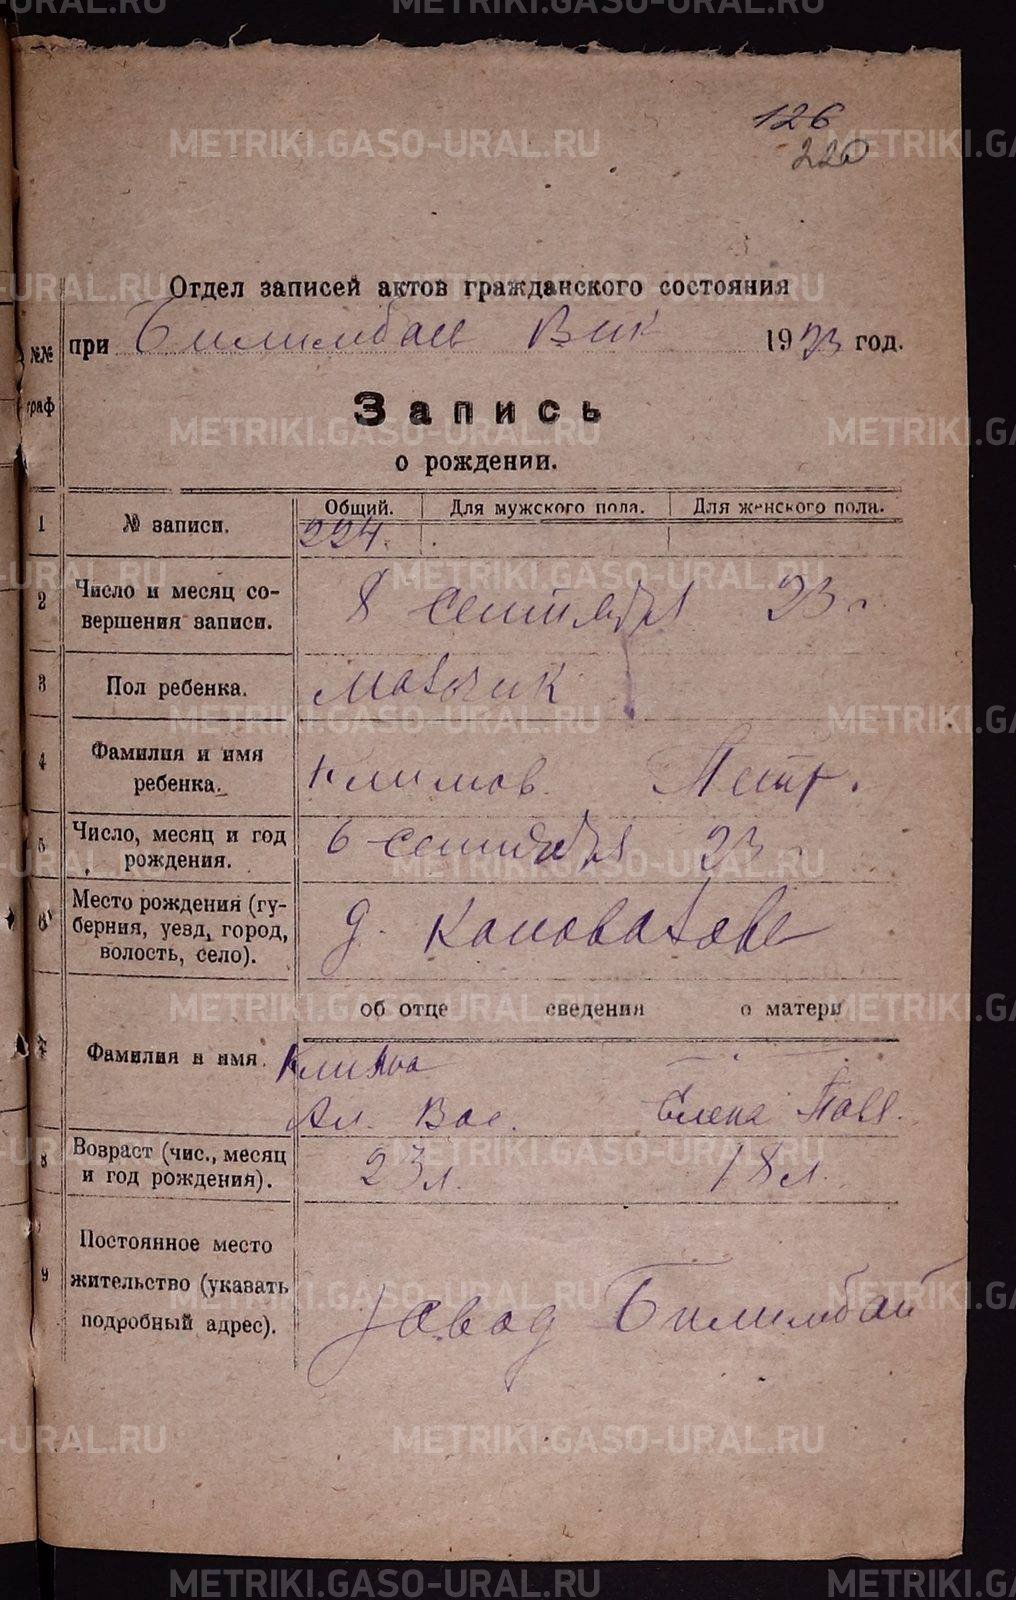 METRIKI.GASO-URAL.RU
126
220
Отдел записей актов гражданского состояния
при Билимбаев Вик 1923 год.
№№ граф
Запись
о рождении.
1 № записи. Общий. Для мужского пола. Для женского пола.
224.
2 Число и месяц со-
вершения записи. 8 сентября 23 г
3 Пол ребенка. мальчик
4 Фамилия и имя
ребенка. Климов. Петр.
5 Число, месяц и год
рождения. 6 сентября 23 г
6 Место рождения (гу-
берния, уезд, город,
волость, село). д. Коновалове
об отце сведения о матери
7 Фамилия и имя. Климова
Ал. Вас. Елена Павл.
8 Возраст (чис., месяц
и год рождения). 23 л. 18 л.
9 Постоянное место
жительство (указать
подробный адрес). завод Билимбай